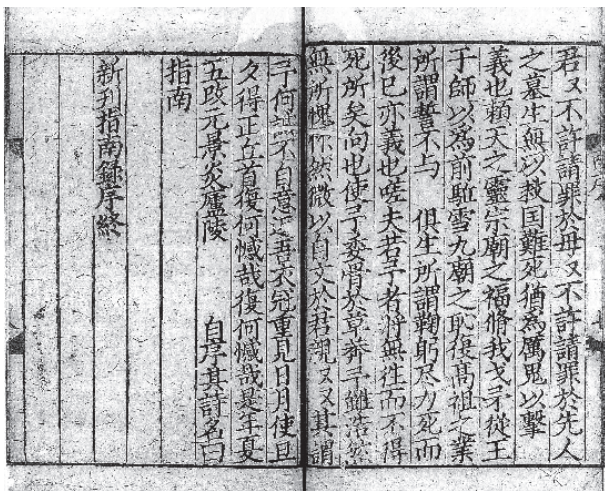 君又不許請罪於母又不許請罪於先人
之墓生無以救国難死猶為厲鬼以擊
義也頼天之靈宗廟之福脩我戈矛從王
于師以為前駈雪九廟之恥復髙祖之業
所謂誓不与　俱生所謂鞠躬尽力死而
後已亦義也嗟夫若予者將無徃而不得
死所矣向也使予委骨於草莽予雖浩然
無所愧怍然微以自文於君親又又其謂
予何誠不自意返吾衣冠重見日月使旦
夕得正丘首復何憾哉復何憾哉是年夏
五攺元景炎廬陵　　自序其詩名曰
指南
新刊指南錄序終